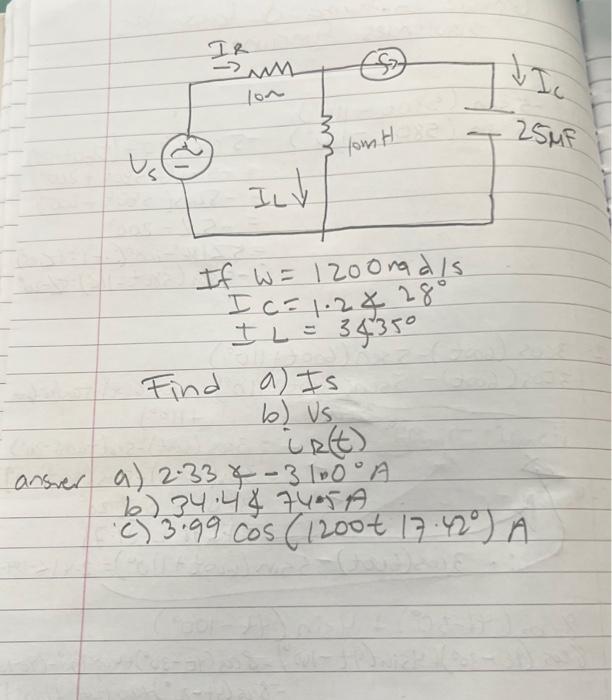 IR
10Ω
Is
↓ Ic
25μF
10mH
Vs
IL ↓
If W = 1200rad/s
Ic = 1.2∡28°
IL = 3∡35°
Find a) Is
b) Vs
iR(t)
answer a) 2.33∡-31.0°A
b) 34.4∡74.5A
c) 3.99 cos (1200t 17.42°) A